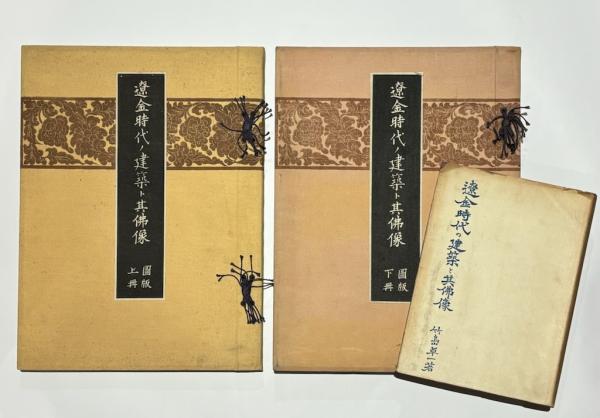 遼金時代ノ建築ト其佛像
圖版
上冊
遼金時代ノ建築ト其佛像
圖版
下冊
遼金時代の建築と其佛像
竹島卓一著